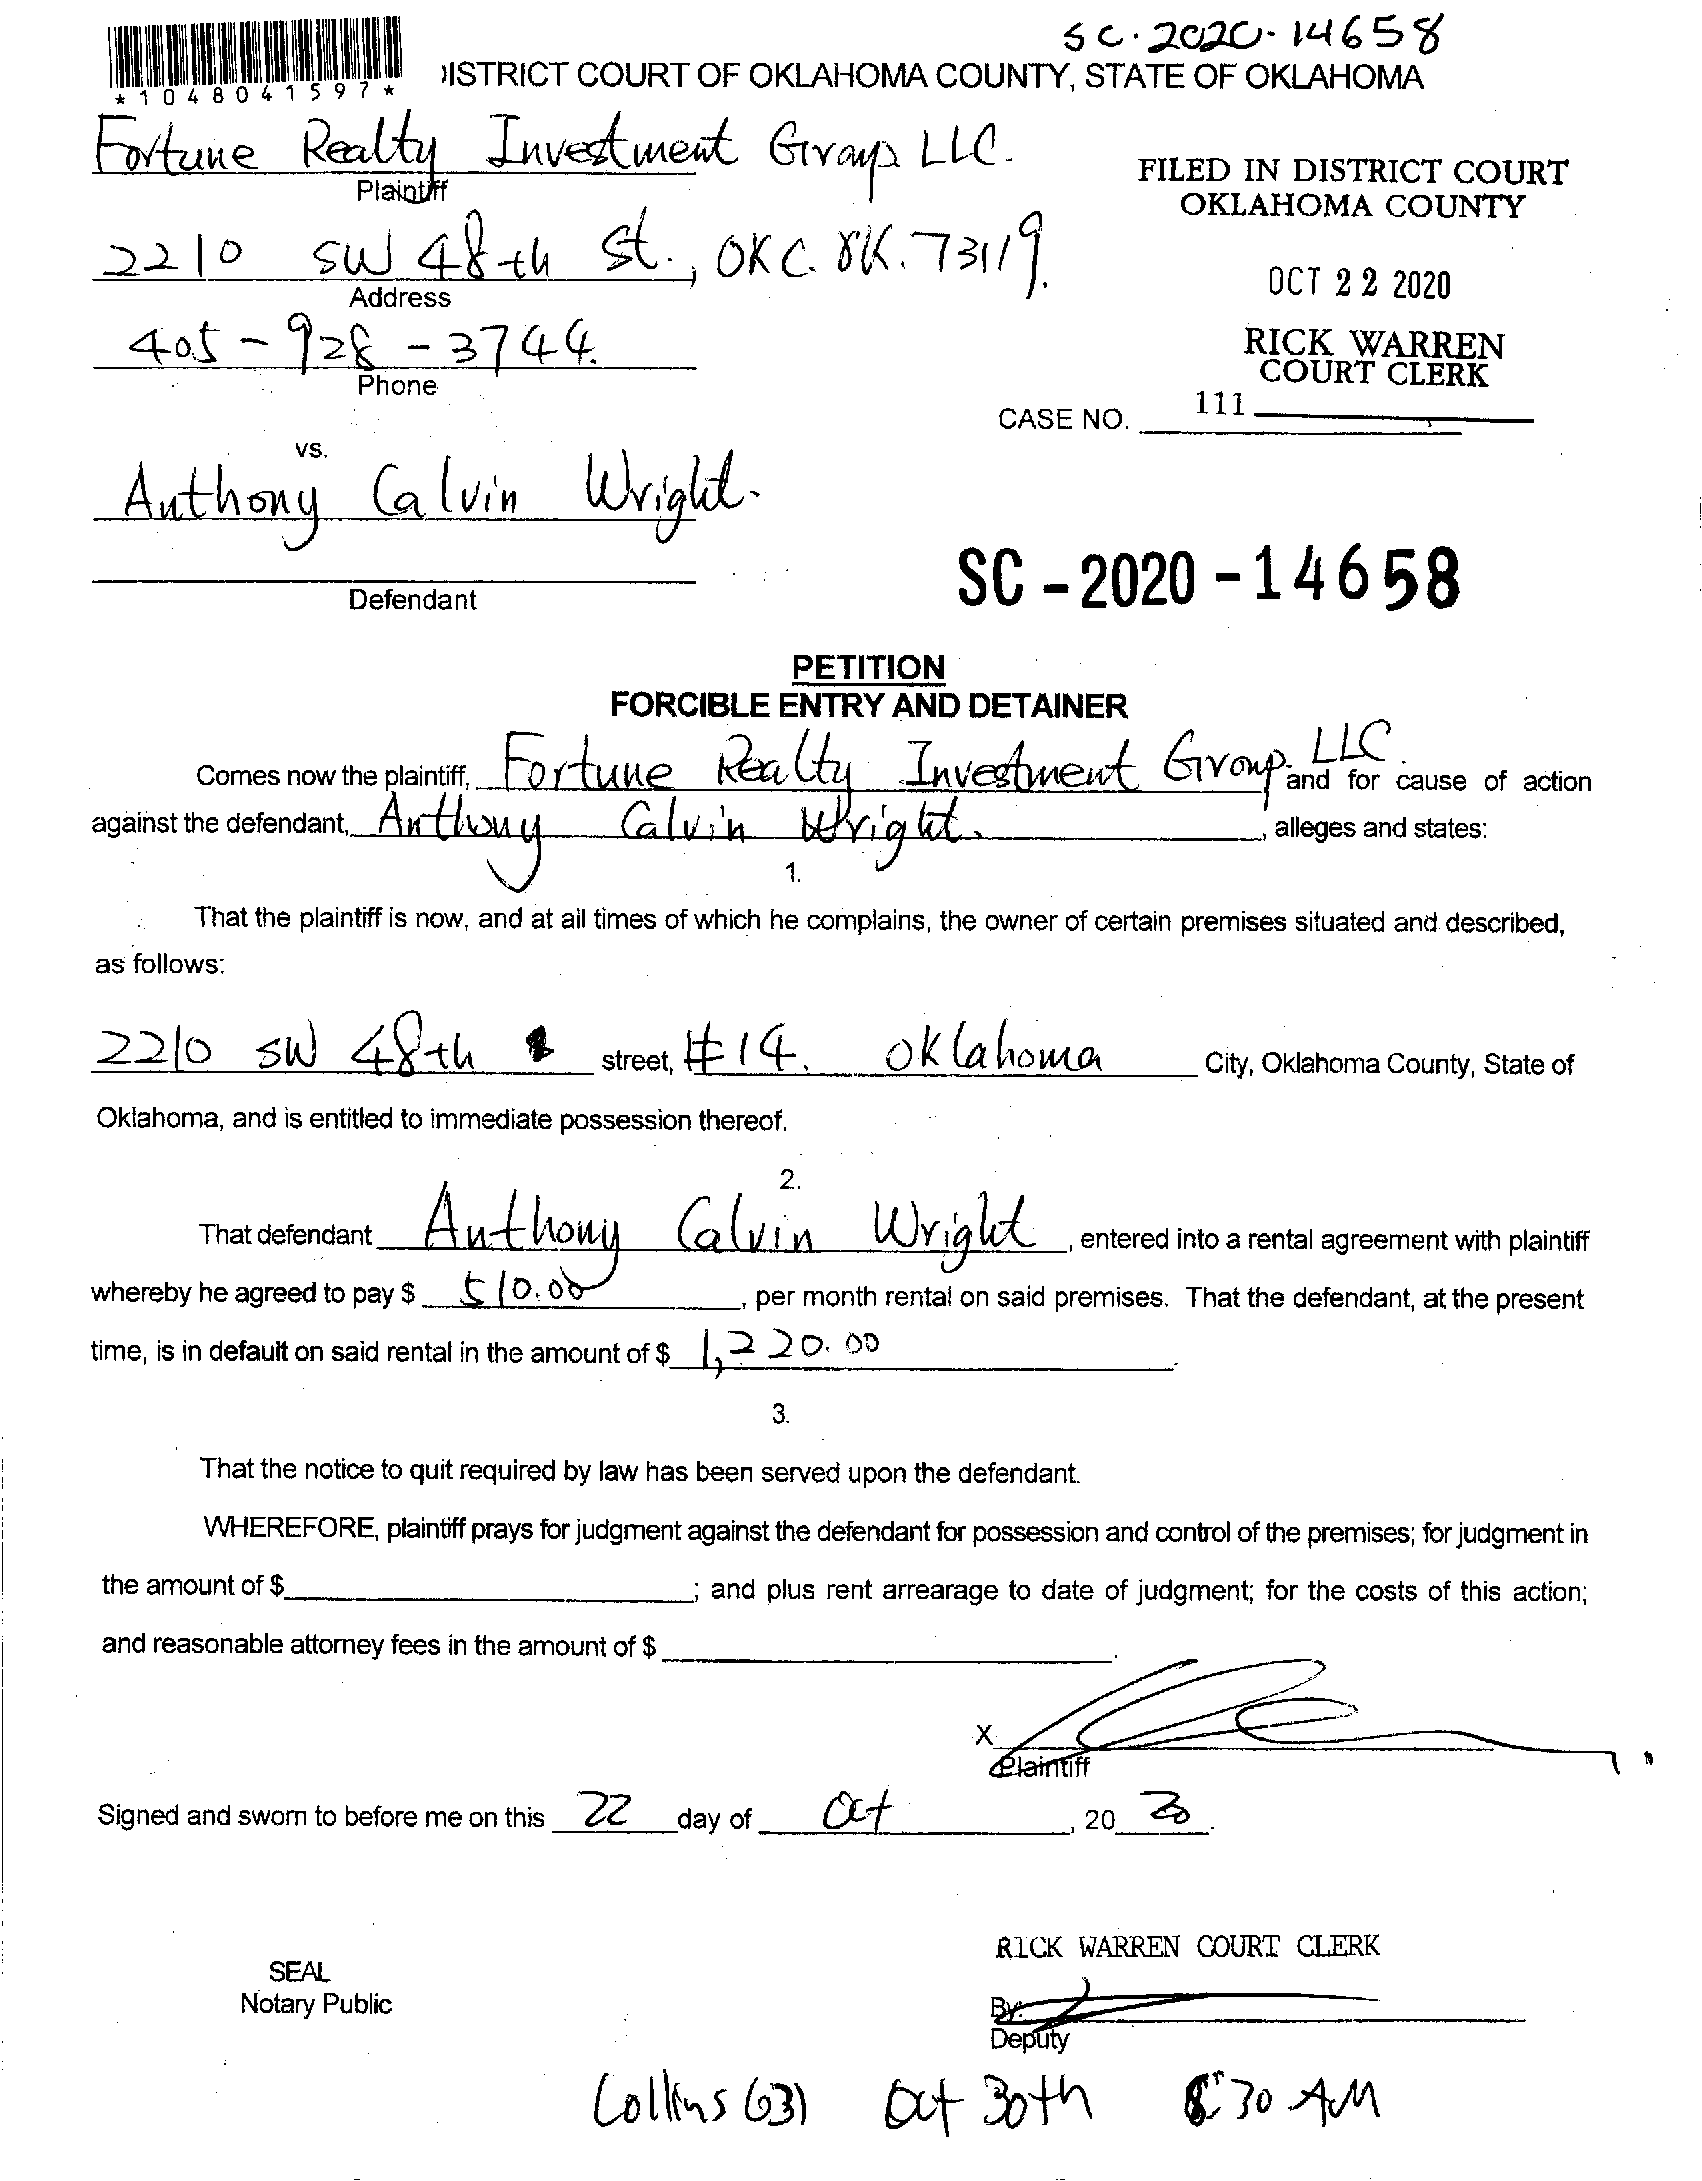 SC-2020-14658
*1048041597*
DISTRICT COURT OF OKLAHOMA COUNTY, STATE OF OKLAHOMA
Fortune Realty Investment Group LLC.
Plaintiff
FILED IN DISTRICT COURT
OKLAHOMA COUNTY
2210 SW 48th St., OKC. OK. 73119.
Address
OCT 22 2020
405-928-3744.
Phone
RICK WARREN
COURT CLERK
CASE NO. 111
vs.
Anthony Calvin Wright.
Defendant
SC-2020-14658
PETITION
FORCIBLE ENTRY AND DETAINER
Comes now the plaintiff, Fortune Realty Investment Group. LLC. and for cause of action
against the defendant, Anthony Calvin Wright. , alleges and states:
1.
That the plaintiff is now, and at all times of which he complains, the owner of certain premises situated and described,
as follows:
2210 SW 48th street, #14. Oklahoma City, Oklahoma County, State of
Oklahoma, and is entitled to immediate possession thereof.
2.
That defendant Anthony Calvin Wright , entered into a rental agreement with plaintiff
whereby he agreed to pay $ 510.00 , per month rental on said premises. That the defendant, at the present
time, is in default on said rental in the amount of $ 1,220.00 .
3.
That the notice to quit required by law has been served upon the defendant.
WHEREFORE, plaintiff prays for judgment against the defendant for possession and control of the premises; for judgment in
the amount of $ ; and plus rent arrearage to date of judgment; for the costs of this action;
and reasonable attorney fees in the amount of $ .
X
Plaintiff
Signed and sworn to before me on this 22 day of Oct , 20 20 .
RICK WARREN COURT CLERK
SEAL
Notary Public
By:
Deputy
Collins (63) Oct 30th 8:30 AM